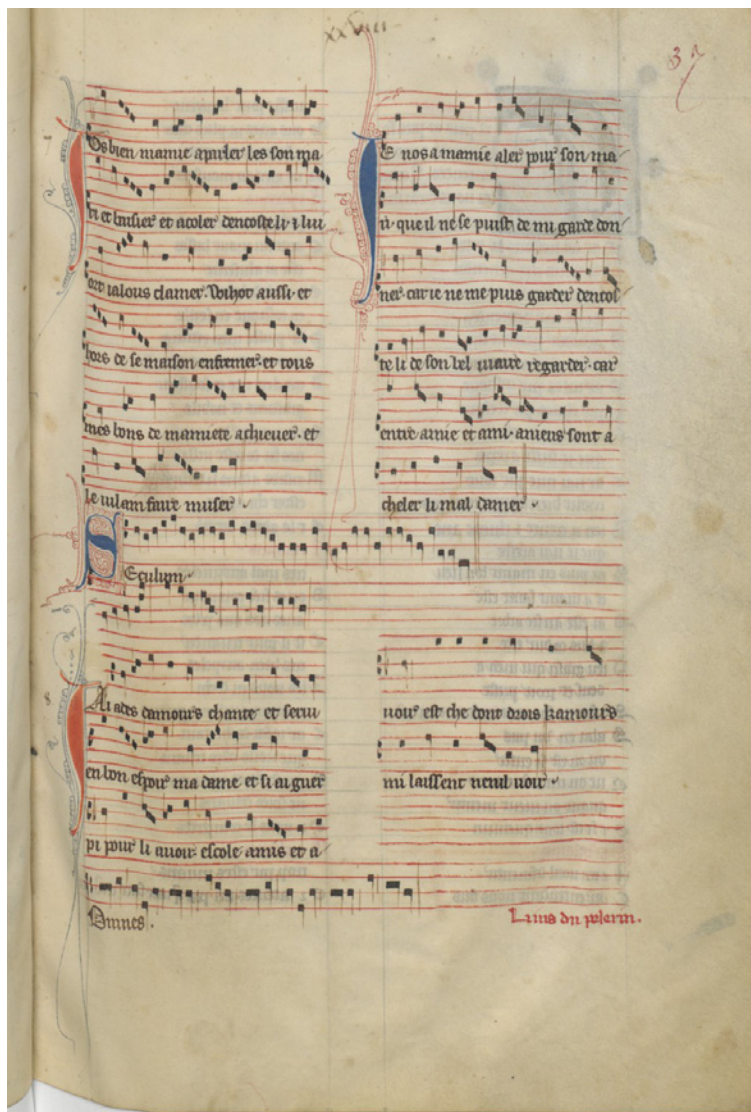 xxviii
37
Os bien mamie aparler les son ma
ri et baisier et acoler dencoste li
ort ialous clamer. Wihot aussi. et
hors de se maison enfremer. et tous
mes bons de mamiete achieuer. et
le uilain faire muser
E nos a mamie aler pour son ma
ri. que il ne se puist de mi garde don
ner. car ie ne me puis garder dencos
te li de son bel uiaire regarder. car
entre amie et ami. sont a
cheler li mal damer
Seculum.
Ai ades damours chante et serui
en bon espoir ma dame et si ai guer
pi pour li auoir. escole amis et a
uoir est che dont drois kamours
mi laissent nenul uoir.
Omnes.
Li ius du pelerin.